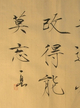 改得能
莫忘